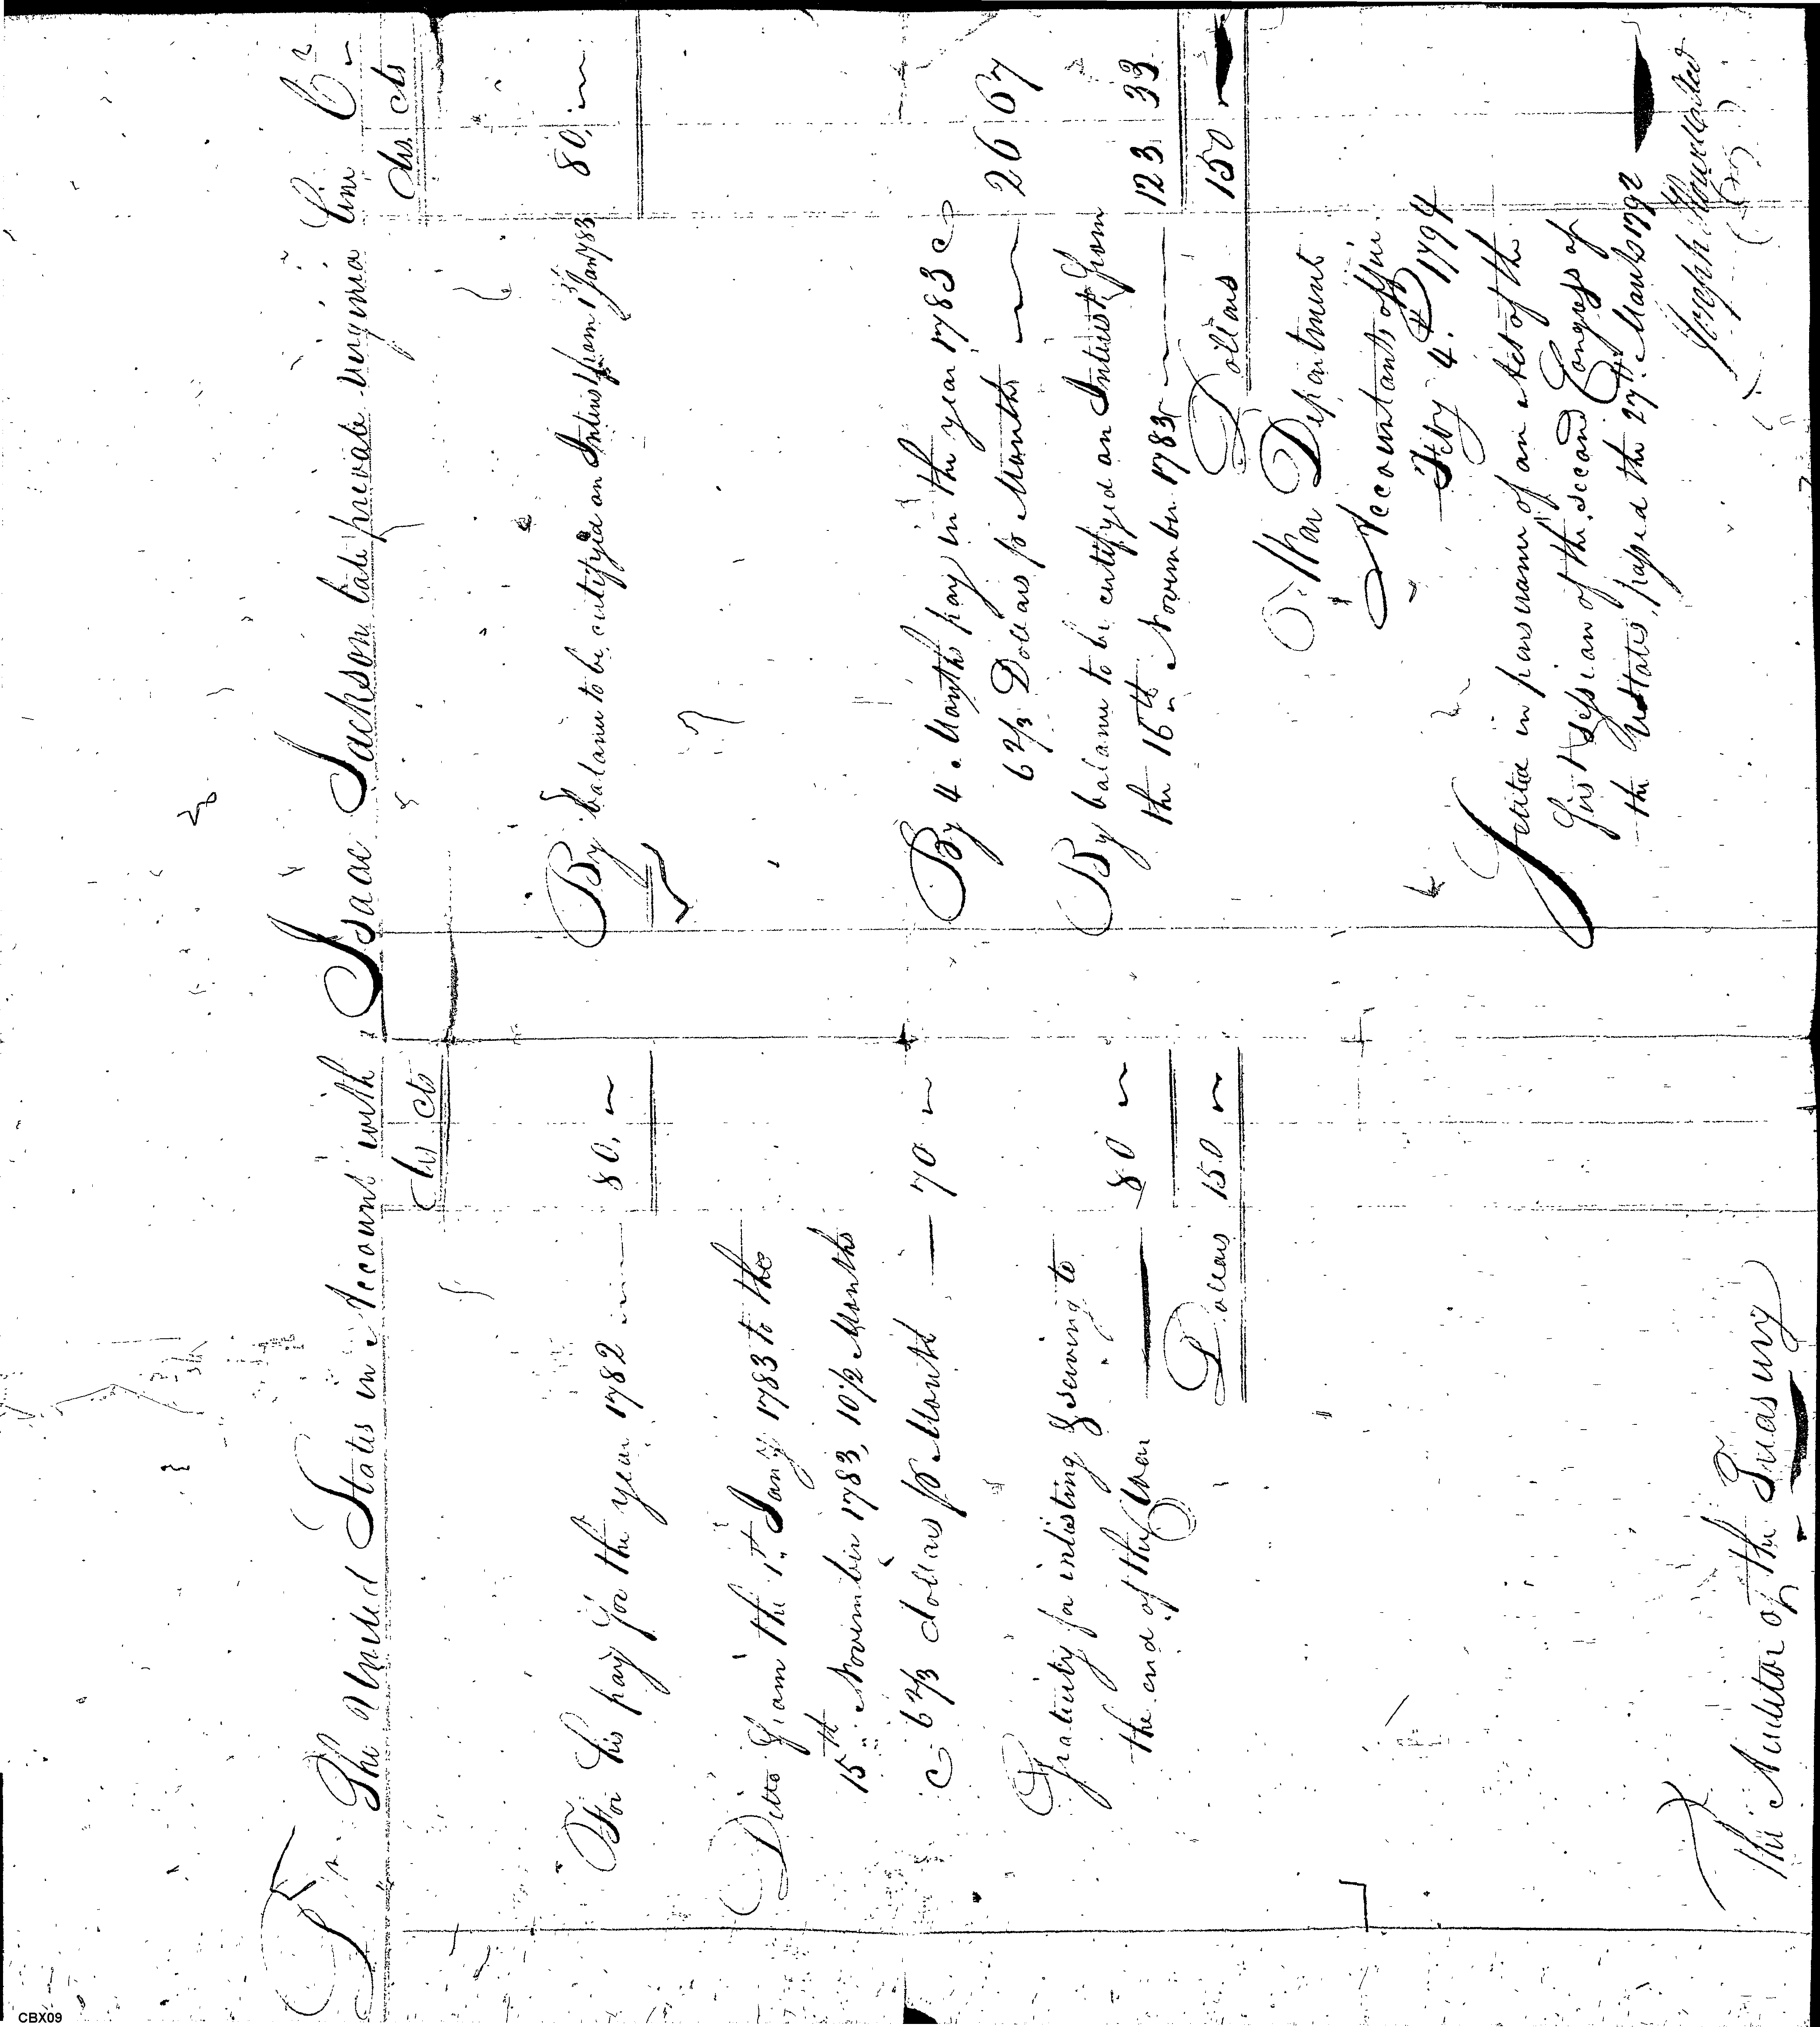 Dr The United States in Account with Isaac Jackson late private Virginia Line Cr
dls cts
dls cts
For his pay for the year 1782 80.
Ditto from the 1st Jany 1783 to the
15th November 1783, 10 1/2 Months
@ 6 2/3 dollars pr Month 70
Gratuity for inlisting & serving to
the end of the War 80
Dollars 150
The Auditor of the Treasury
By balance to be certifyed on Interest from 1st Jany 1783 80.
By 4 Months pay in the year 1783 @
6 2/3 Dollars pr Month 26 67
By balance to be certifyed on Interest from
the 16th November 1783 123 33
Dollars 150
War Department
Accountants office
Feby 4th 1794
Settled in pursuance of an Act of the
first Session of the second Congress of
the Ustates, passed the 27th March 1792
Joseph Howell
CBX09